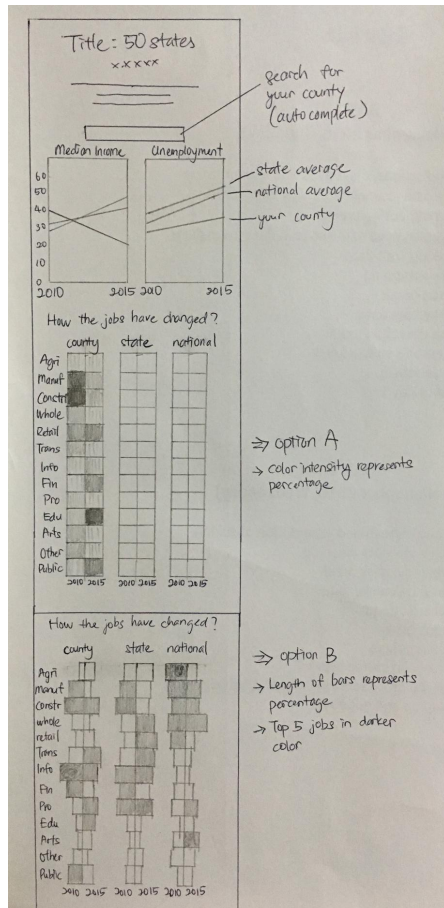 Title: 50 states
xxxxx
search for
your county
(autocomplete)
Median Income
Unemployment
60
50
40
30
20
10
0
2010 2015 2010 2015
state average
national average
your county
How the jobs have changed?
county state national
Agri
Manuf
Constr
Whole
Retail
Trans
Info
Fin
Pro
Edu
Arts
Other
Public
2010 2015 2010 2015 2010 2015
⇒ option A
→ color intensity represents
percentage
How the jobs have changed?
county state national
Agri
manuf
constr
whole
retail
Trans
Info
Fin
Pro
Edu
Arts
Other
Public
2010 2015 2010 2015 2010 2015
⇒ option B
→ Length of bars represents
percentage
→ Top 5 jobs in darker
color